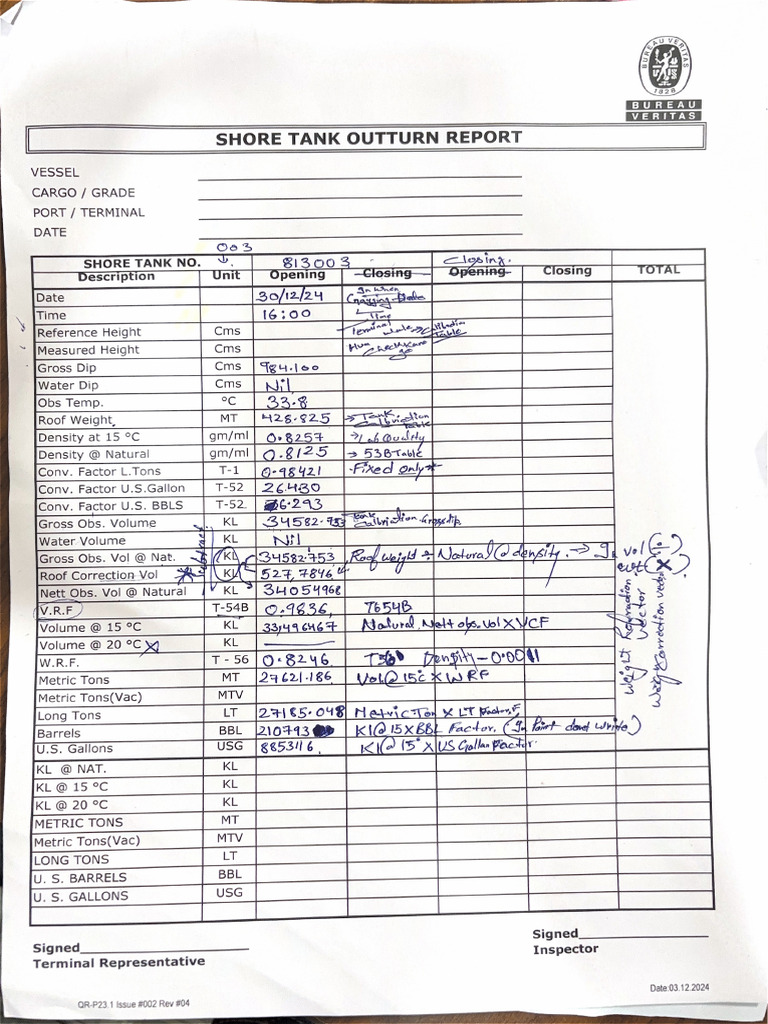 BUREAU VERITAS
1828
BUREAU
VERITAS
SHORE TANK OUTTURN REPORT
VESSEL
CARGO / GRADE
PORT / TERMINAL
DATE
003
SHORE TANK NO. ↓. 813003 Closing.
Description Unit Opening Closing Opening Closing TOTAL
Date 30/12/24
Time 16:00 Time
Reference Height Cms Terminal Calibration Table
Measured Height Cms
Gross Dip Cms 984.100
Water Dip Cms Nil
Obs Temp. °C 33.8
Roof Weight MT 428.825 → Tank Calibration Table
Density at 15 °C gm/ml 0.8257 → Lab Quality
Density @ Natural gm/ml 0.8125 → 53B Table
Conv. Factor L.Tons T-1 0.98421 Fixed only
Conv. Factor U.S.Gallon T-52 26.430
Conv. Factor U.S. BBLS T-52 6.293
Gross Obs. Volume KL 34582.753 Tank Calbriation Grossdip
Water Volume KL Nil
Gross Obs. Vol @ Nat. KL 34582.753 Roof weight ÷ Natural @ density. →
Roof Correction Vol KL 527,7846
Nett Obs. Vol @ Natural KL 34054968
V.R.F T-54B 0.9836, T654B
Volume @ 15 °C KL 33,496467 Natural Nett obs. vol X VCF
Volume @ 20 °C X KL
W.R.F. T - 56 0.8246 T56 Density - 0.0011
Metric Tons MT 27621.186 Vol @ 15c X WRF
Metric Tons(Vac) MTV
Long Tons LT 27185.048 Metric Ton X LT Factor.
Barrels BBL 210793 Kl @ 15 X BBL Factor. (In Point dont write)
U.S. Gallons USG 8853116. Kl @ 15° X US Gallan Factor.
KL @ NAT. KL
KL @ 15 °C KL
KL @ 20 °C KL
METRIC TONS MT
Metric Tons(Vac) MTV
LONG TONS LT
U. S. BARRELS BBL
U. S. GALLONS USG
Signed Signed
Terminal Representative Inspector
QR-P23.1 Issue #002 Rev #04 Date:03.12.2024